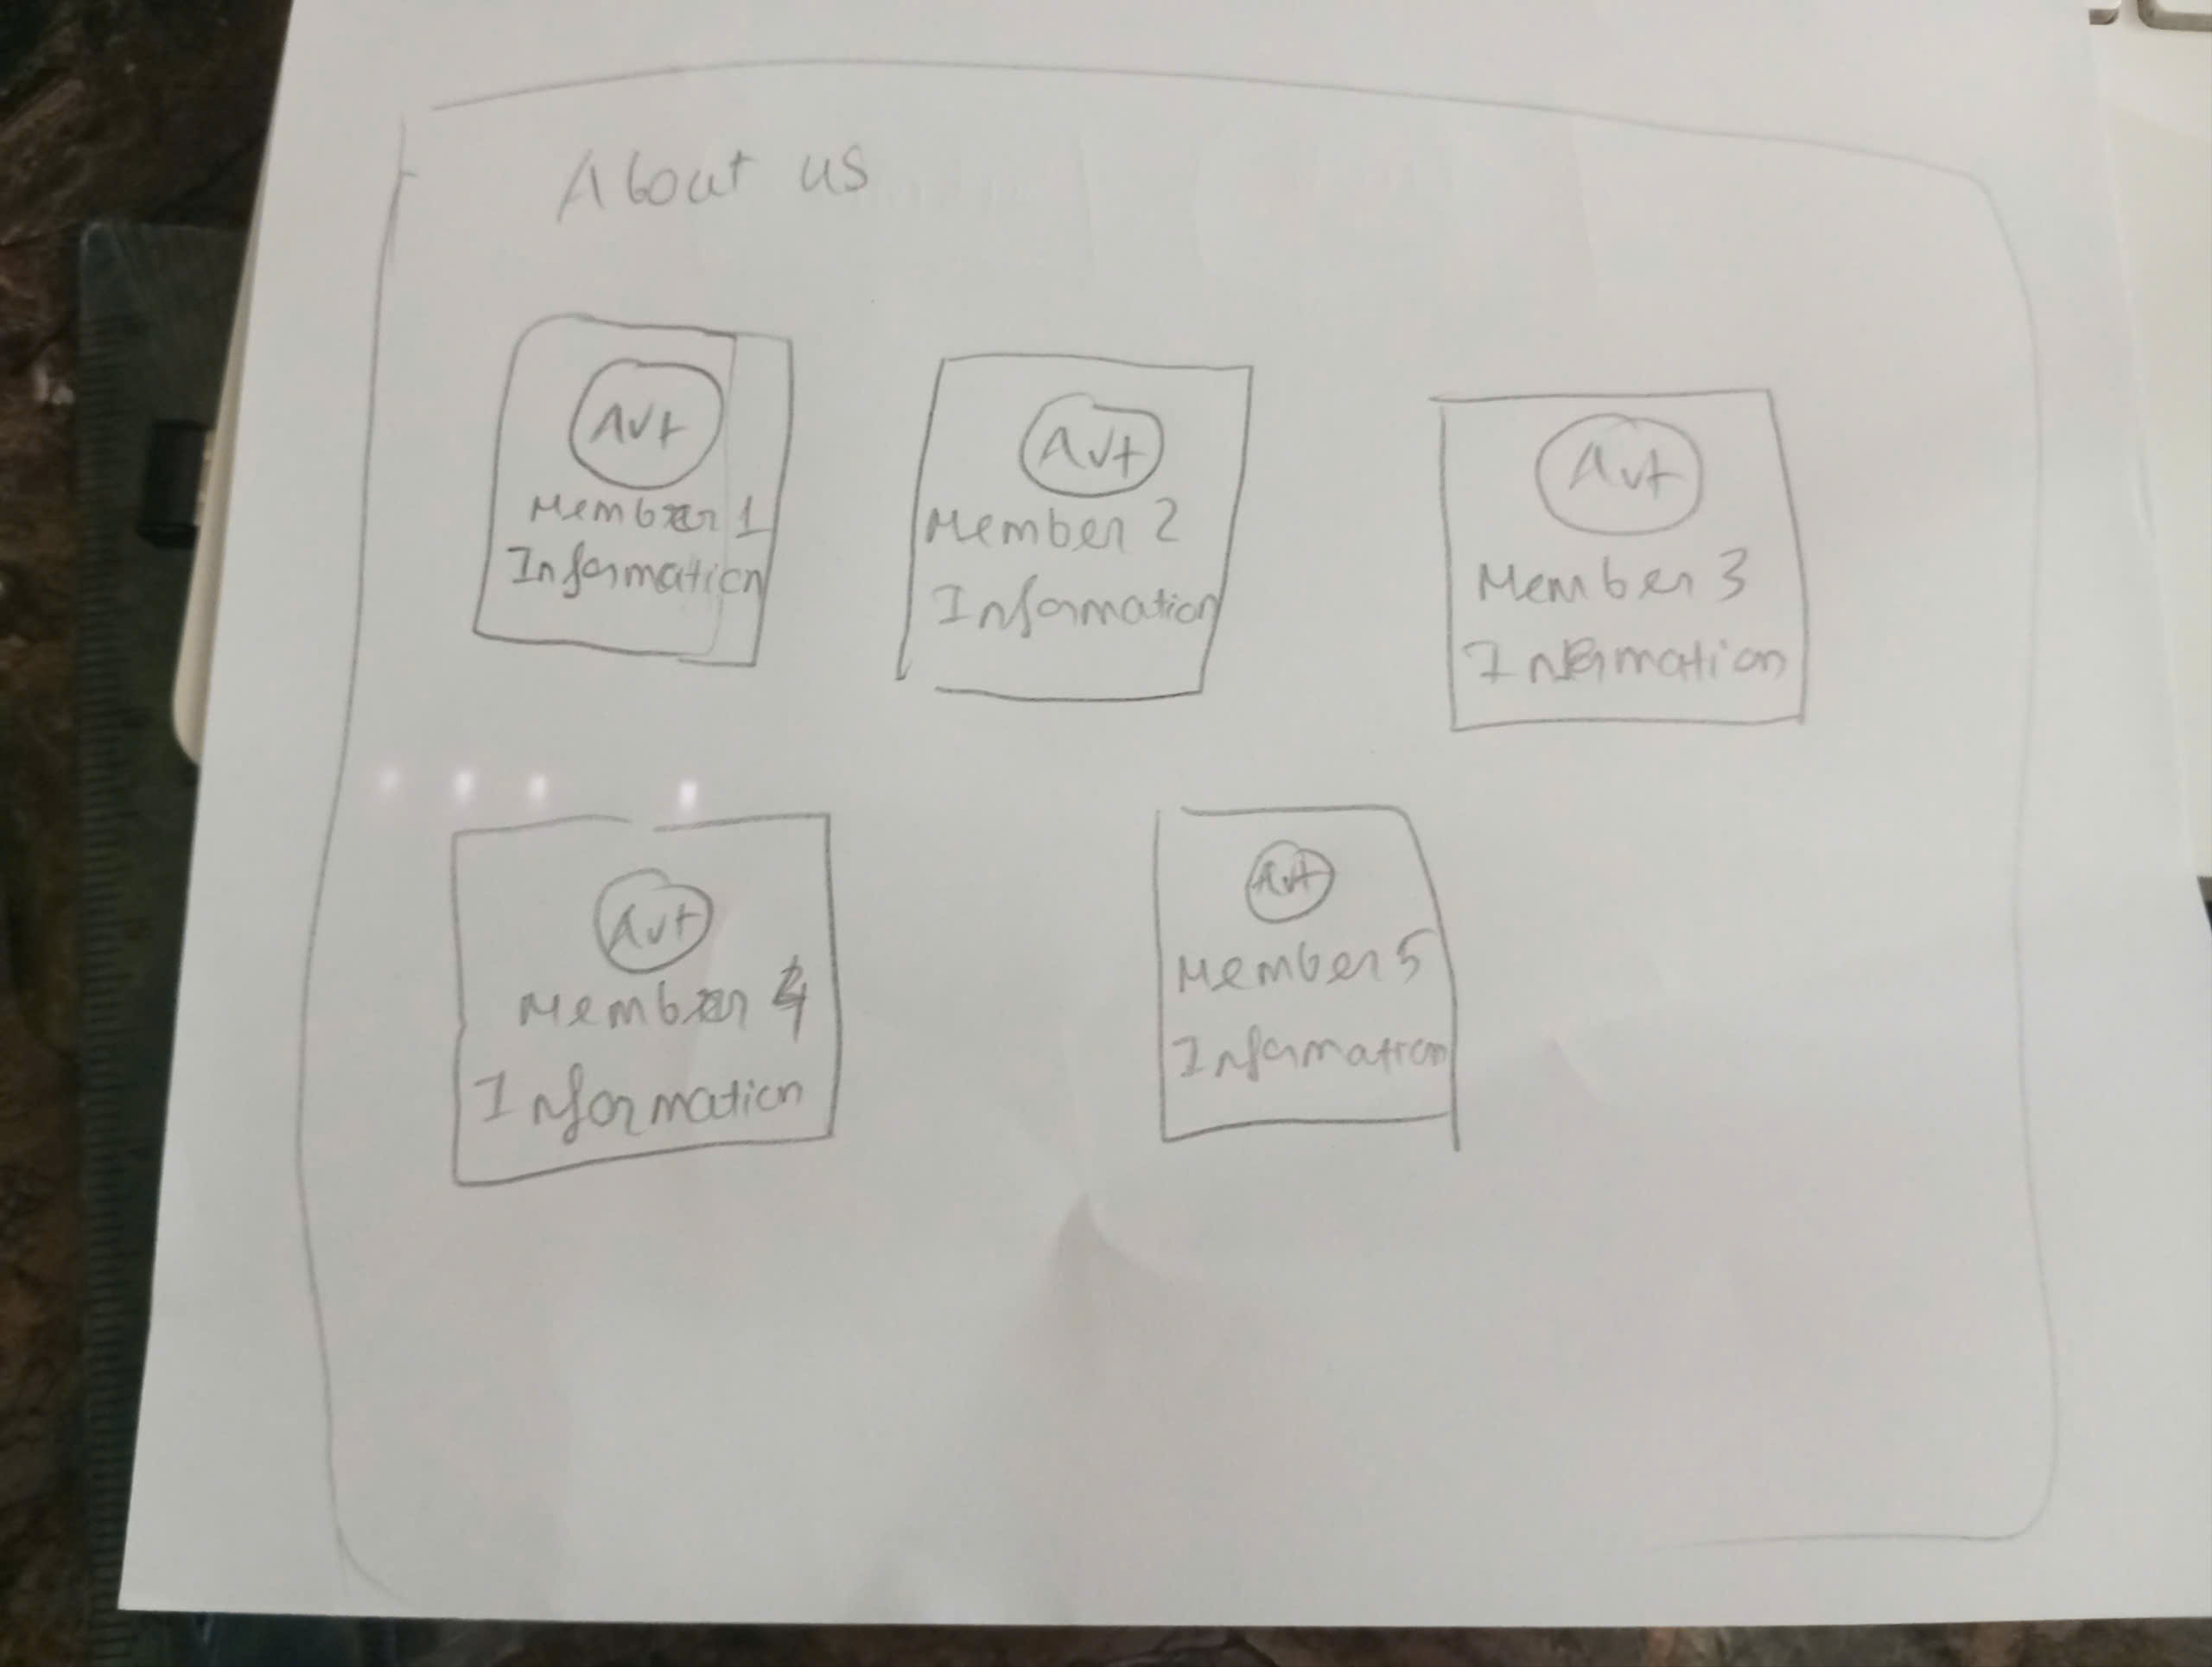 About us
Avt
Member 1
Information
Avt
Member 2
Information
Avt
Member 3
Information
Avt
Member 4
Information
Avt
Member 5
Information